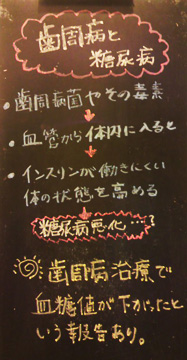 歯周病と
糖尿病
・歯周病菌やその毒素
・血管から体内に入ると
・インスリンが働きにくい
体の状態を高める
糖尿病悪化…!
歯周病治療で
血糖値が下がったと
いう報告あり。